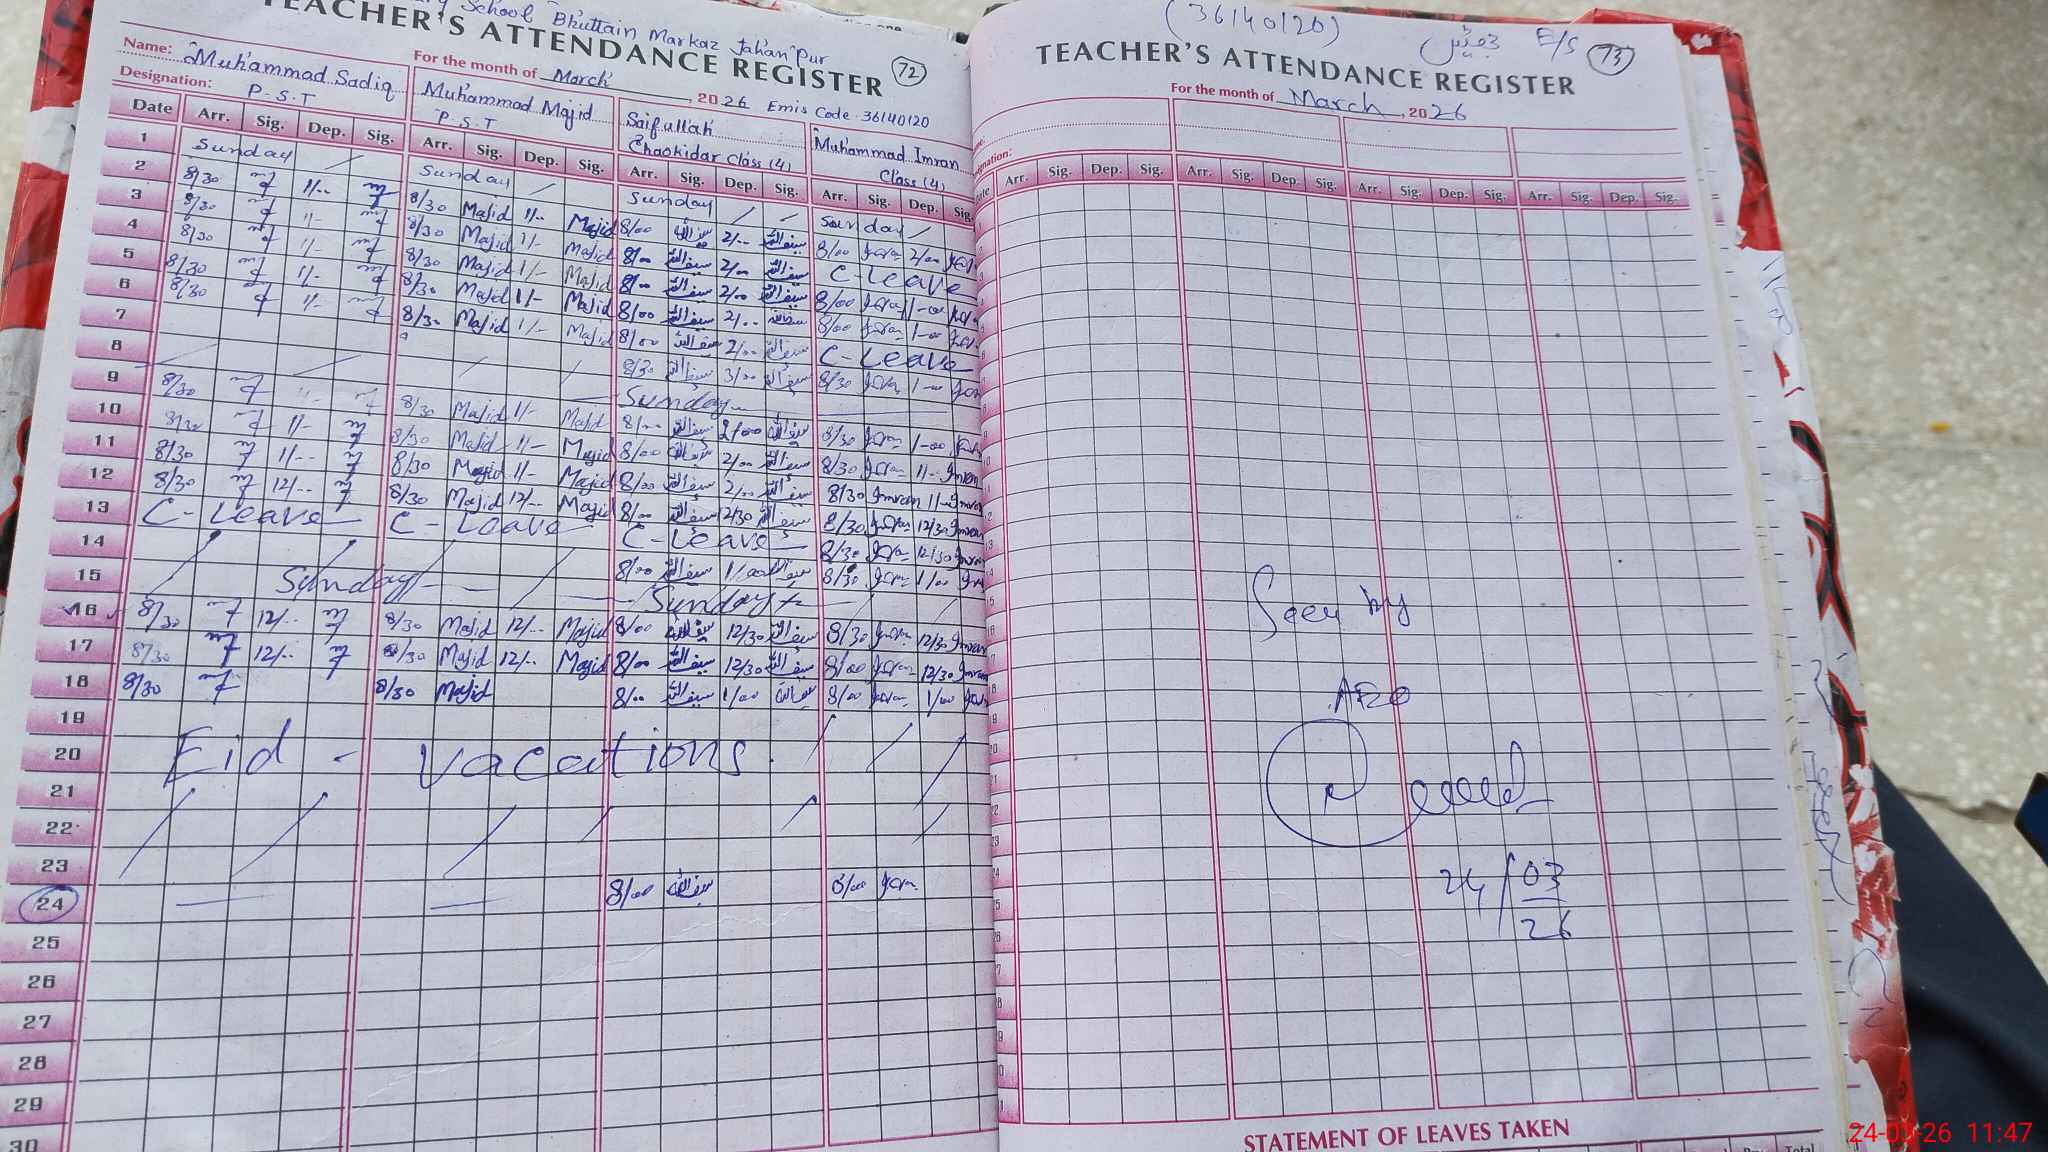 School Bhuttain Markaz Jahanpur
TEACHER'S ATTENDANCE REGISTER 72
For the month of March, 2026 Emis Code 36140120
Name: Muhammad Sadiq
Designation: P.S.T
Muhammad Majid
P.S.T
Saifullah
Chaokidar Class (4)
Muhammad Imran
Class (4)
Date Arr. Sig. Dep. Sig. Arr. Sig. Dep. Sig. Arr. Sig. Dep. Sig. Arr. Sig. Dep. Sig.
1 Sunday Sunday Sunday Sunday
2 8/30 11/.. 8/30 Majid 11/- Majid 8/00 سیف اللہ 2/00 سیف اللہ 8/00 2/00
3 8/30 11/- 8/30 Majid 11/- Majid 8/00 سیف اللہ 2/00 سیف اللہ C-Leave
4 8/30 11/- 8/30 Majid 11/- Majid 8/00 سیف اللہ 2/00 سیف اللہ 8/00 1-00
5 8/30 11/- 8/30 Majid 11/- Majid 8/00 سیف اللہ 2/00 سیف اللہ 8/00 1-00
6 8/30 11/- 8/30 Majid 11/- Majid 8/00 سیف اللہ 2/00 سیف اللہ C-Leave
7 8/30 سیف اللہ 3/00 سیف اللہ 8/30 1-00
8 Sunday
9 8/30 11/- 8/30 Majid 11/- Majid 8/00 سیف اللہ 2/00 سیف اللہ 8/30 1-00
10 8/30 11/- 8/30 Majid 11/- Majid 8/00 سیف اللہ 2/00 سیف اللہ 8/30 11/- Imran
11 8/30 11/.. 8/30 Majid 11/- Majid 8/00 سیف اللہ 2/00 سیف اللہ 8/30 Imran 11/- Imran
12 8/30 12/.. 8/30 Majid 12/.. Majid 8/00 سیف اللہ 12/30 سیف اللہ 8/30 12/30 Imran
13 C-Leave C-Leave C-Leave 8/30 12/30 Imran
14 8/00 سیف اللہ 1/00 سیف اللہ 8/30 1/00
15 Sunday Sunday
16 8/30 12/.. 8/30 Majid 12/.. Majid 8/00 سیف اللہ 12/30 سیف اللہ 8/30 12/30 Imran
17 8/30 12/.. 8/30 Majid 12/.. Majid 8/00 سیف اللہ 12/30 سیف اللہ 8/00 12/30 Imran
18 8/30 8/30 Majid 8/00 سیف اللہ 1/00 سیف اللہ 8/00 1/00
19
20 Eid - vacations
21
22
23
24 8/00 سیف اللہ 8/00
25
26
27
28
29
30
(36140120) E/S 73
TEACHER'S ATTENDANCE REGISTER
For the month of March, 2026
Arr. Sig. Dep. Sig. Arr. Sig. Dep. Sig. Arr. Sig. Dep. Sig. Arr. Sig. Dep. Sig.
Seen by
24/03
26
STATEMENT OF LEAVES TAKEN
Total
24-03-26 11:47